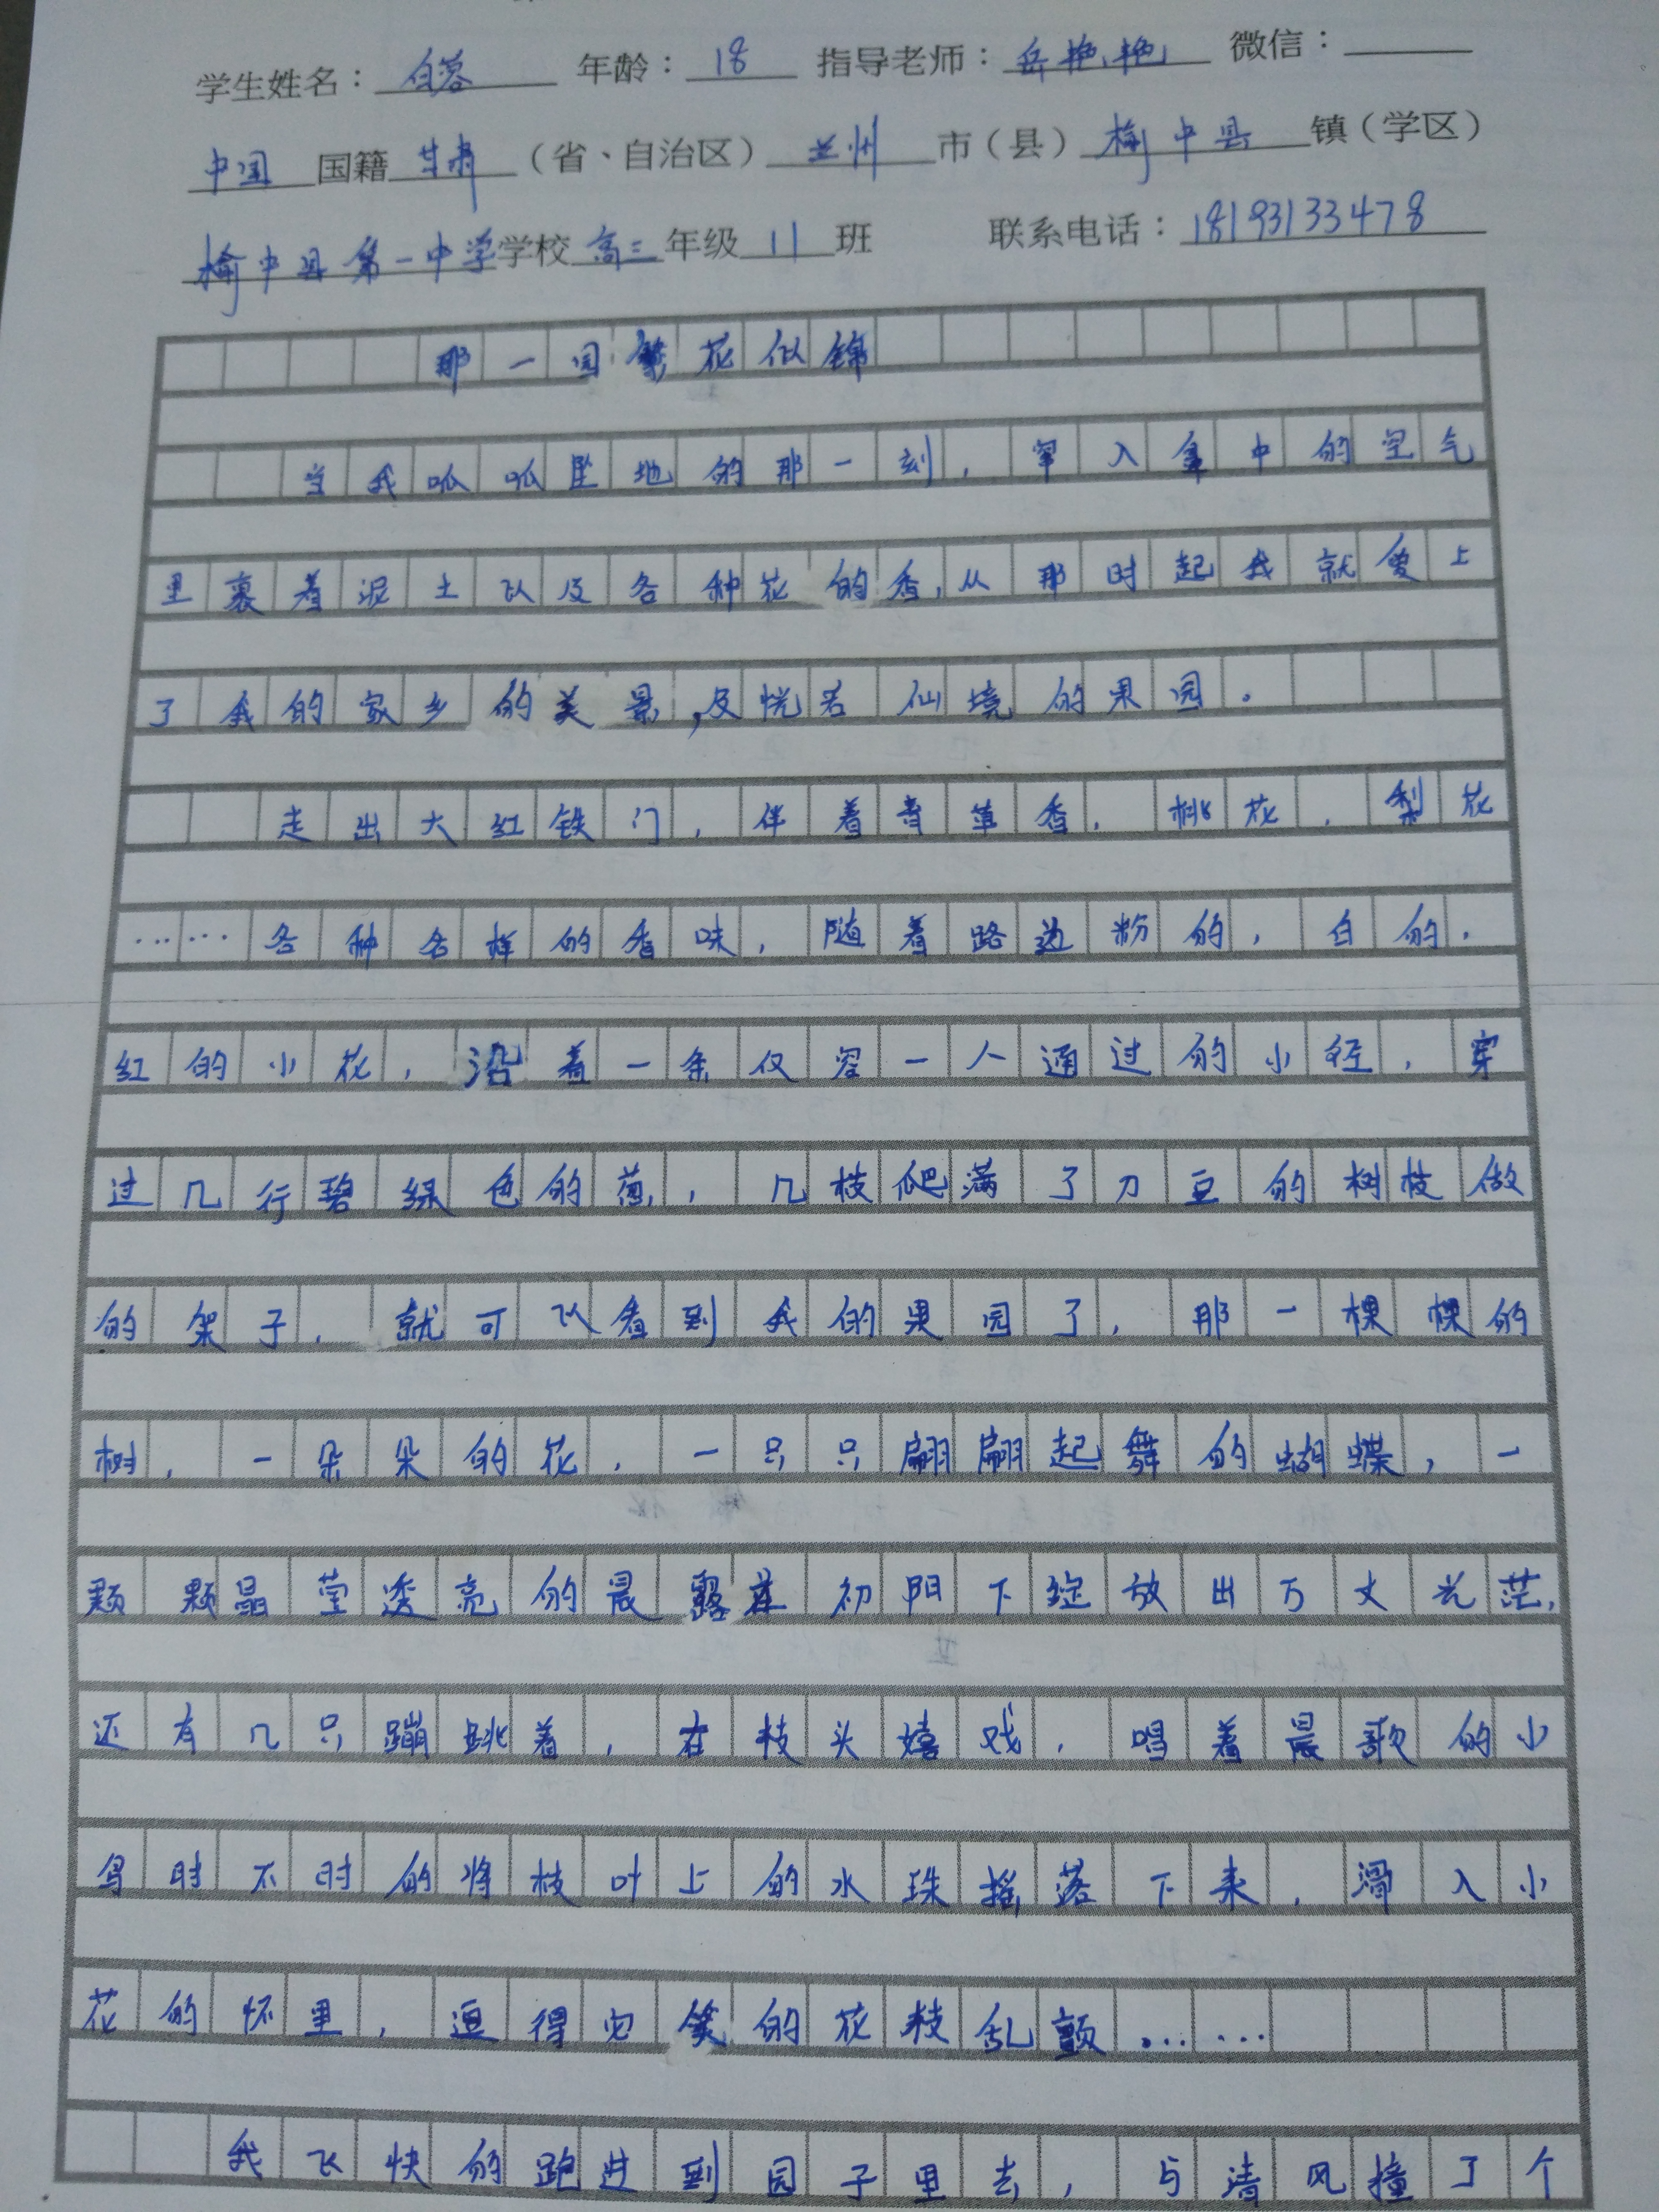 学生姓名：白蓉 年龄：18 指导老师：岳艳艳 微信：
中国国籍甘肃（省、自治区）兰州市（县）榆中县镇（学区）
榆中县第一中学学校高三年级11班 联系电话：18193133478
那一园繁花似锦
当我呱呱坠地的那一刻，窜入鼻中的空气
里裹着泥土以及各种花的香，从那时起我就爱上
了我的家乡的美景，及恍若仙境的果园。
走出大红铁门，伴着青草香，桃花，梨花
……各种各样的香味，随着路边粉的，白的，
红的小花，沿着一条仅容一人通过的小径，穿
过几行碧绿色的葱，几枝爬满了刀豆的树枝做
的架子，就可以看到我的果园了，那一棵棵的
树，一朵朵的花，一只只翩翩起舞的蝴蝶，一
颗颗晶莹透亮的晨露在初阳下绽放出万丈光茫，
还有几只蹦跳着，在枝头嬉戏，唱着晨歌的小
鸟时不时的将枝叶上的水珠摇落下来，滑入小
花的怀里，逗得它笑的花枝乱颤……
我飞快的跑进到园子里去，与清风撞了个